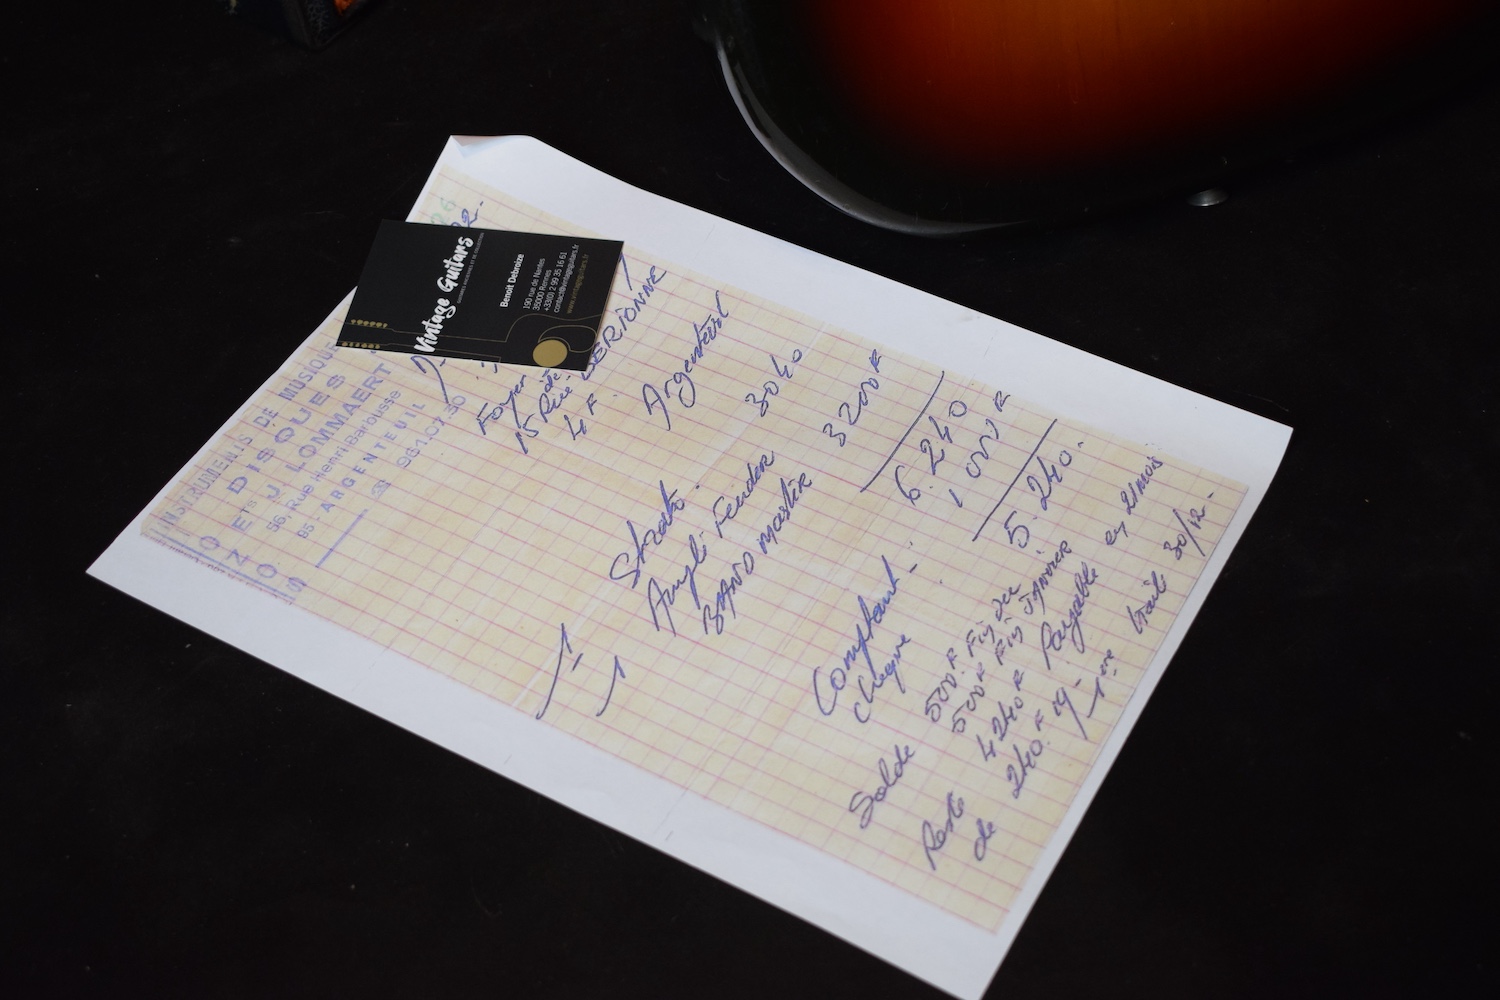 INSTRUMENTS DE MUSIQUE
DISQUES
Ets J. LOMMAERT
56, Rue Henri Barbusse
95 - ARGENTEUIL
961.07.30
ONOS
Vintage Guitars
Benoit Debroize
190 rue de Nantes
35000 Rennes
+33(0) 2 99 35 16 61
contact@vintageguitars.fr
www.vintageguitars.fr
Foyer de
15 Rue
4 F.
Argenteuil
1 Strato. 3040
1 Ampli Fender
BAND Master 3200 F
6.240
Comptant - 1000 F
chèque
5.240.
Solde 500 F Fin Dec
500 F Fin JANVIER
Reste 4240 F Payable en 21 mois
de 240. F 19 - 1ere traite 30/12 -